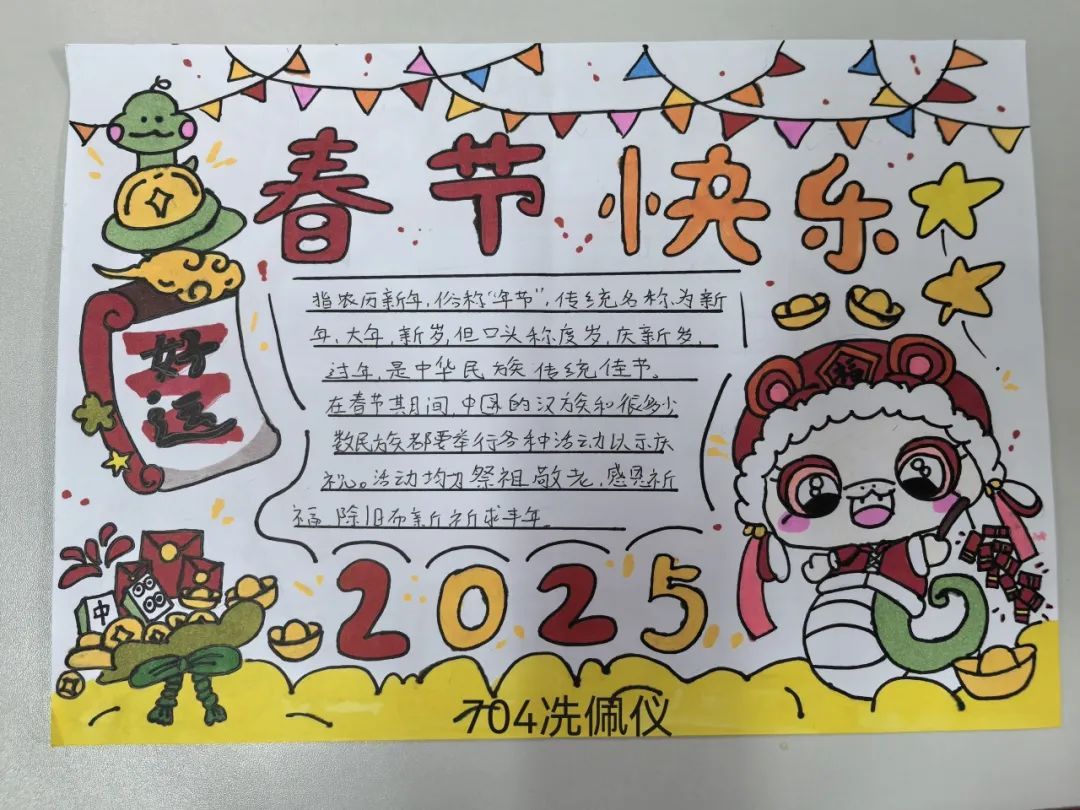 春节快乐
指农历新年，俗称“年节”，传统名称为新
年、大年，新岁，但口头称度岁，庆新岁、
过年，是中华民族传统佳节。
在春节其月间，中国的汉族和很多少
数民族都要举行各种活动以示庆
祝。活动均为祭祖敬老，感恩祈
福，除旧布新祈求丰年。
好
运
福
中
2025
704冼佩仪